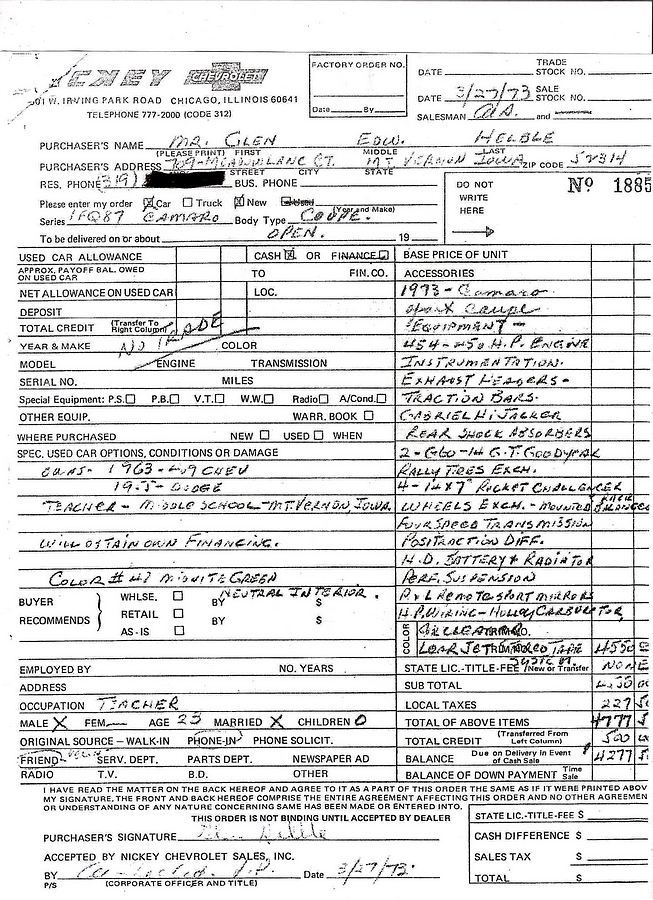 NICKEY CHEVROLET
501 W. IRVING PARK ROAD CHICAGO, ILLINOIS 60641
TELEPHONE 777-2000 (CODE 312)
FACTORY ORDER NO.
Date By
TRADE
DATE STOCK NO.
DATE 3/27/73 SALE STOCK NO.
SALESMAN and
PURCHASER'S NAME MR. GLEN EDW. HELBLE
(PLEASE PRINT) FIRST MIDDLE LAST
PURCHASER'S ADDRESS CT. MT VERNON IOWA ZIP CODE 52314
STREET CITY STATE
RES. PHONE (319) BUS. PHONE
DO NOT WRITE HERE
No 1885
Please enter my order Car Truck New Used
(Year and Make)
Series 1FQ87 CAMARO Body Type COUPE.
To be delivered on or about OPEN. 19
USED CAR ALLOWANCE CASH OR FINANCE BASE PRICE OF UNIT
APPROX. PAYOFF BAL. OWED ON USED CAR TO FIN. CO. ACCESSORIES
NET ALLOWANCE ON USED CAR LOC. 1973 - Camaro
DEPOSIT Sport Coupe
TOTAL CREDIT (Transfer To Right Column) EQUIPMENT -
NO TRADE
YEAR & MAKE COLOR 454-450 H.P. ENGINE
MODEL ENGINE TRANSMISSION INSTRUMENTATION.
SERIAL NO. MILES EXHAUST HEADERS -
Special Equipment: P.S. P.B. V.T. W.W. Radio A/Cond. TRACTION BARS.
OTHER EQUIP. WARR. BOOK GABRIEL HI JACKER
WHERE PURCHASED NEW USED WHEN REAR SHOCK ABSORBERS
SPEC. USED CAR OPTIONS, CONDITIONS OR DAMAGE 2-G60-14 G.T. GOODYEAR
OWNS- 1963-409 CHEV RALLY TIRES EXCH.
DODGE 4-14X7" ROCKET CHALLENGER
TEACHER - MIDDLE SCHOOL - MT. VERNON, IOWA. WHEELS EXCH. - MOUNTED & BALANCED
FOUR SPEED TRANSMISSION
WILL OBTAIN OWN FINANCING. POSITRACTION DIFF.
H.D. BATTERY & RADIATOR
COLOR # 47 MIDNITE GREEN PERF. SUSPENSION
NEUTRAL INTERIOR.
BUYER RECOMMENDS
WHLSE. BY $ REMOTE SPORT MIRRORS
RETAIL BY $ H.P. WIRING - HOLLEY CARBURETOR,
AS-IS
COLOR
TAPE 4550
SYSTEM.
EMPLOYED BY NO. YEARS STATE LIC.-TITLE-FEE New or Transfer NONE
ADDRESS SUB TOTAL 4550
OCCUPATION TEACHER LOCAL TAXES 227 50
MALE X FEM AGE 23 MARRIED X CHILDREN 0 TOTAL OF ABOVE ITEMS 4777 5
ORIGINAL SOURCE - WALK-IN PHONE-IN PHONE SOLICIT. TOTAL CREDIT (Transferred From Left Column) 500
FRIEND SERV. DEPT. PARTS DEPT. NEWSPAPER AD BALANCE Due on Delivery in Event of Cash Sale 4277 5
RADIO T.V. B.D. OTHER BALANCE OF DOWN PAYMENT Time Sale
I HAVE READ THE MATTER ON THE BACK HEREOF AND AGREE TO IT AS A PART OF THIS ORDER THE SAME AS IF IT WERE PRINTED ABOV
MY SIGNATURE, THE FRONT AND BACK HEREOF COMPRISE THE ENTIRE AGREEMENT AFFECTING THIS ORDER AND NO OTHER AGREEMEN
OR UNDERSTANDING OF ANY NATURE CONCERNING SAME HAS BEEN MADE OR ENTERED INTO.
THIS ORDER IS NOT BINDING UNTIL ACCEPTED BY DEALER
PURCHASER'S SIGNATURE
ACCEPTED BY NICKEY CHEVROLET SALES, INC.
BY Date 3/27/73
P/S (CORPORATE OFFICER AND TITLE)
STATE LIC.-TITLE-FEE $
CASH DIFFERENCE $
SALES TAX $
TOTAL $